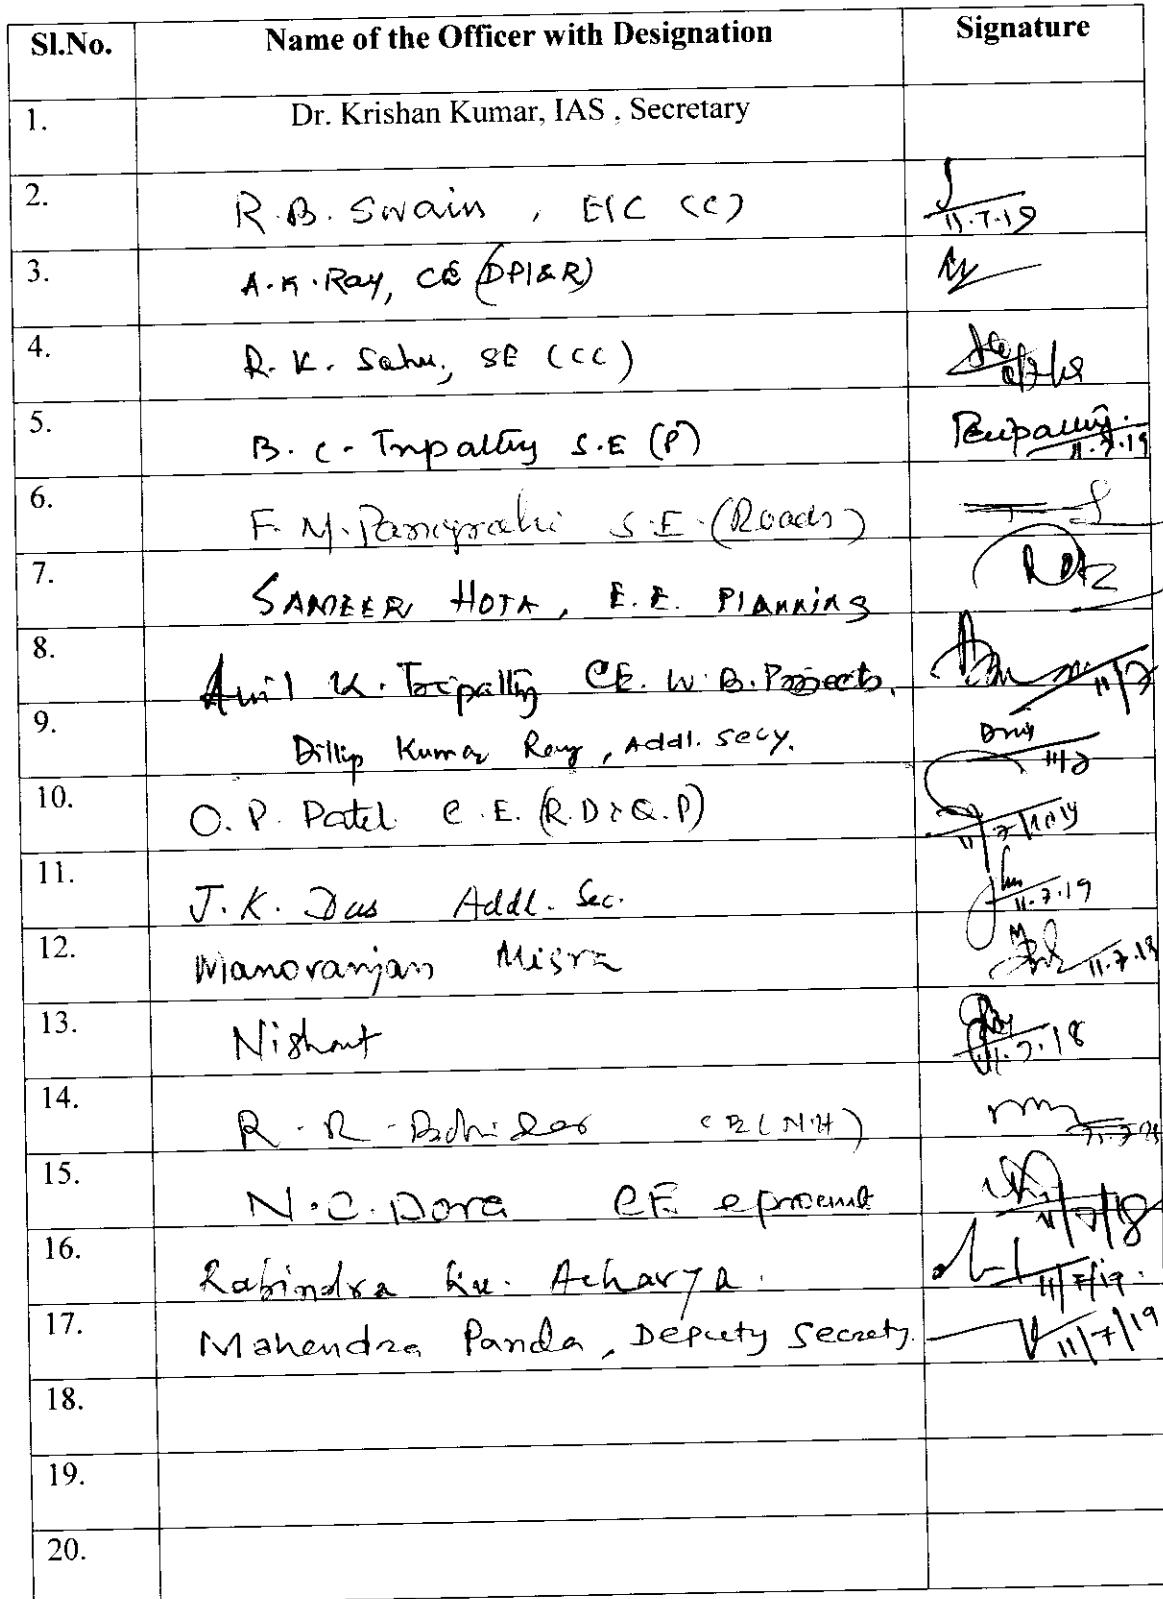 Sl.No. Name of the Officer with Designation Signature
1. Dr. Krishan Kumar, IAS , Secretary
2. R.B. Swain , EIC (C) 11.7.19
3. A.K.Ray, CE (DPI&R)
4. R.K. Sahu, SE (CC)
5. B.C. Tripathy S.E (P) 11.7.19
6. F. M. Panigrahi S.E. (Roads)
7. SAMEER HOTA, E.E. PlANNiNG
8. K. Tripathy CE. W.B. Projects. 11/7
9. Dillip Kumar Ray, Addl. secy. 11/7
10. O.P. Patel C.E. (R.D & Q.P)
11. J.K. Das Addl. Sec. 11.7.19
12. Manoranjan Misra
13. Nishant 11.7.18
14. R.R. (N.H)
15. N.C. Dora CE 11/7/18
16. Rabindra Ku. Acharya. 11/7/19.
17. Mahendra Panda, Deputy Secrety. 11/7/19
18.
19.
20.